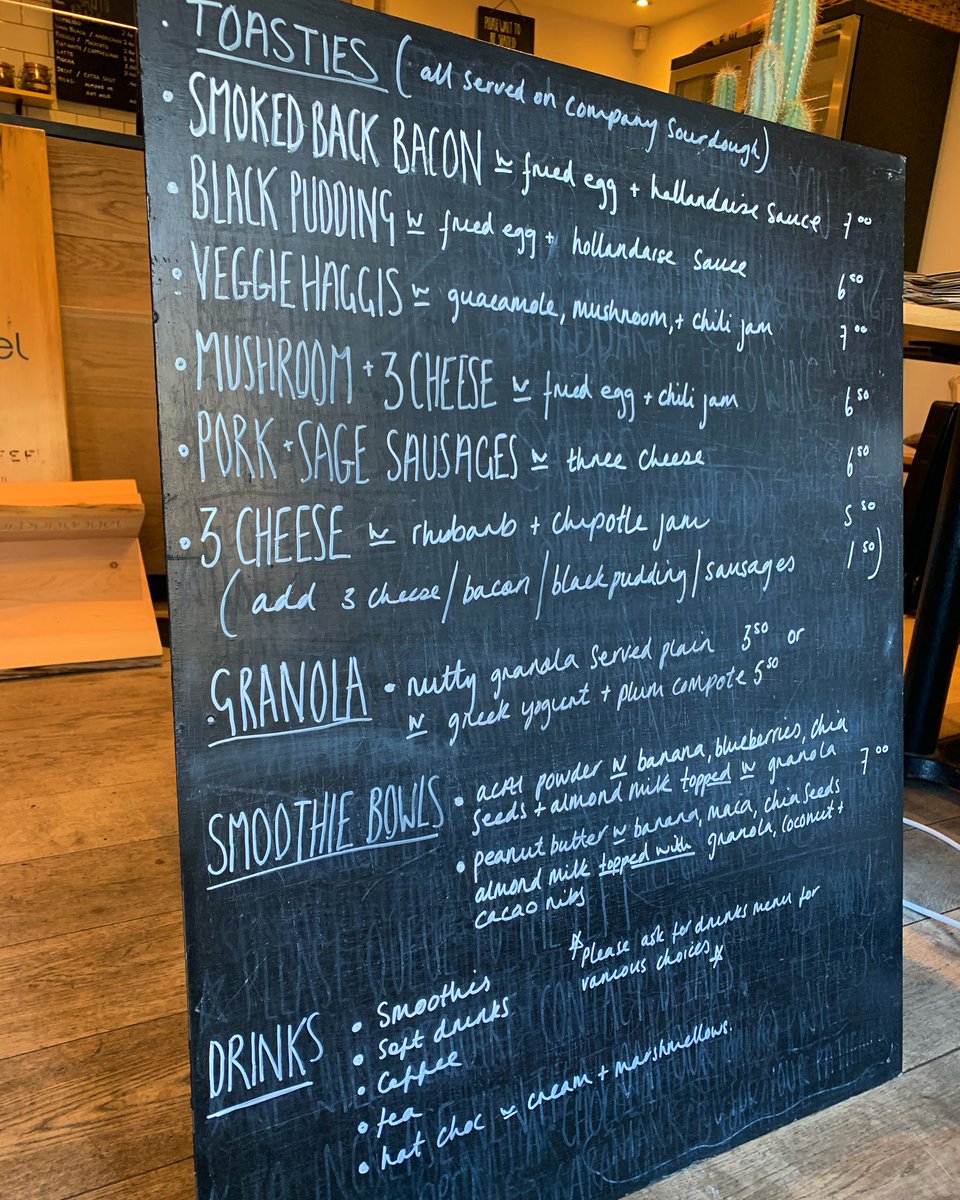 TOASTIES (all served on company sourdough)
• SMOKED BACK BACON w fried egg + hollandaise sauce 7⁰⁰
• BLACK PUDDING w fried egg + hollandaise sauce 6⁵⁰
• VEGGIE HAGGIS w guacamole, mushroom, + chili jam 7⁰⁰
• MUSHROOM + 3 CHEESE w fried egg + chili jam 6⁵⁰
• PORK + SAGE SAUSAGES w three cheese 6⁵⁰
• 3 CHEESE w rhubarb + chipotle jam 5⁵⁰
(add 3 cheese/bacon/black pudding/sausages 1⁵⁰)
GRANOLA • nutty granola served plain 3⁵⁰ or
w greek yogurt + plum compote 5⁵⁰
SMOOTHIE BOWLS • acAI powder w banana, blueberries, chia
seeds + almond milk topped w granola 7⁰⁰
• peanut butter w banana, maca, chia seeds
almond milk topped with granola, coconut +
cacao nibs
*Please ask for drinks menu for
various choices*
DRINKS • Smoothis
• Soft drinks
• Coffee
• tea
• hot choc w cream + marshmellows.